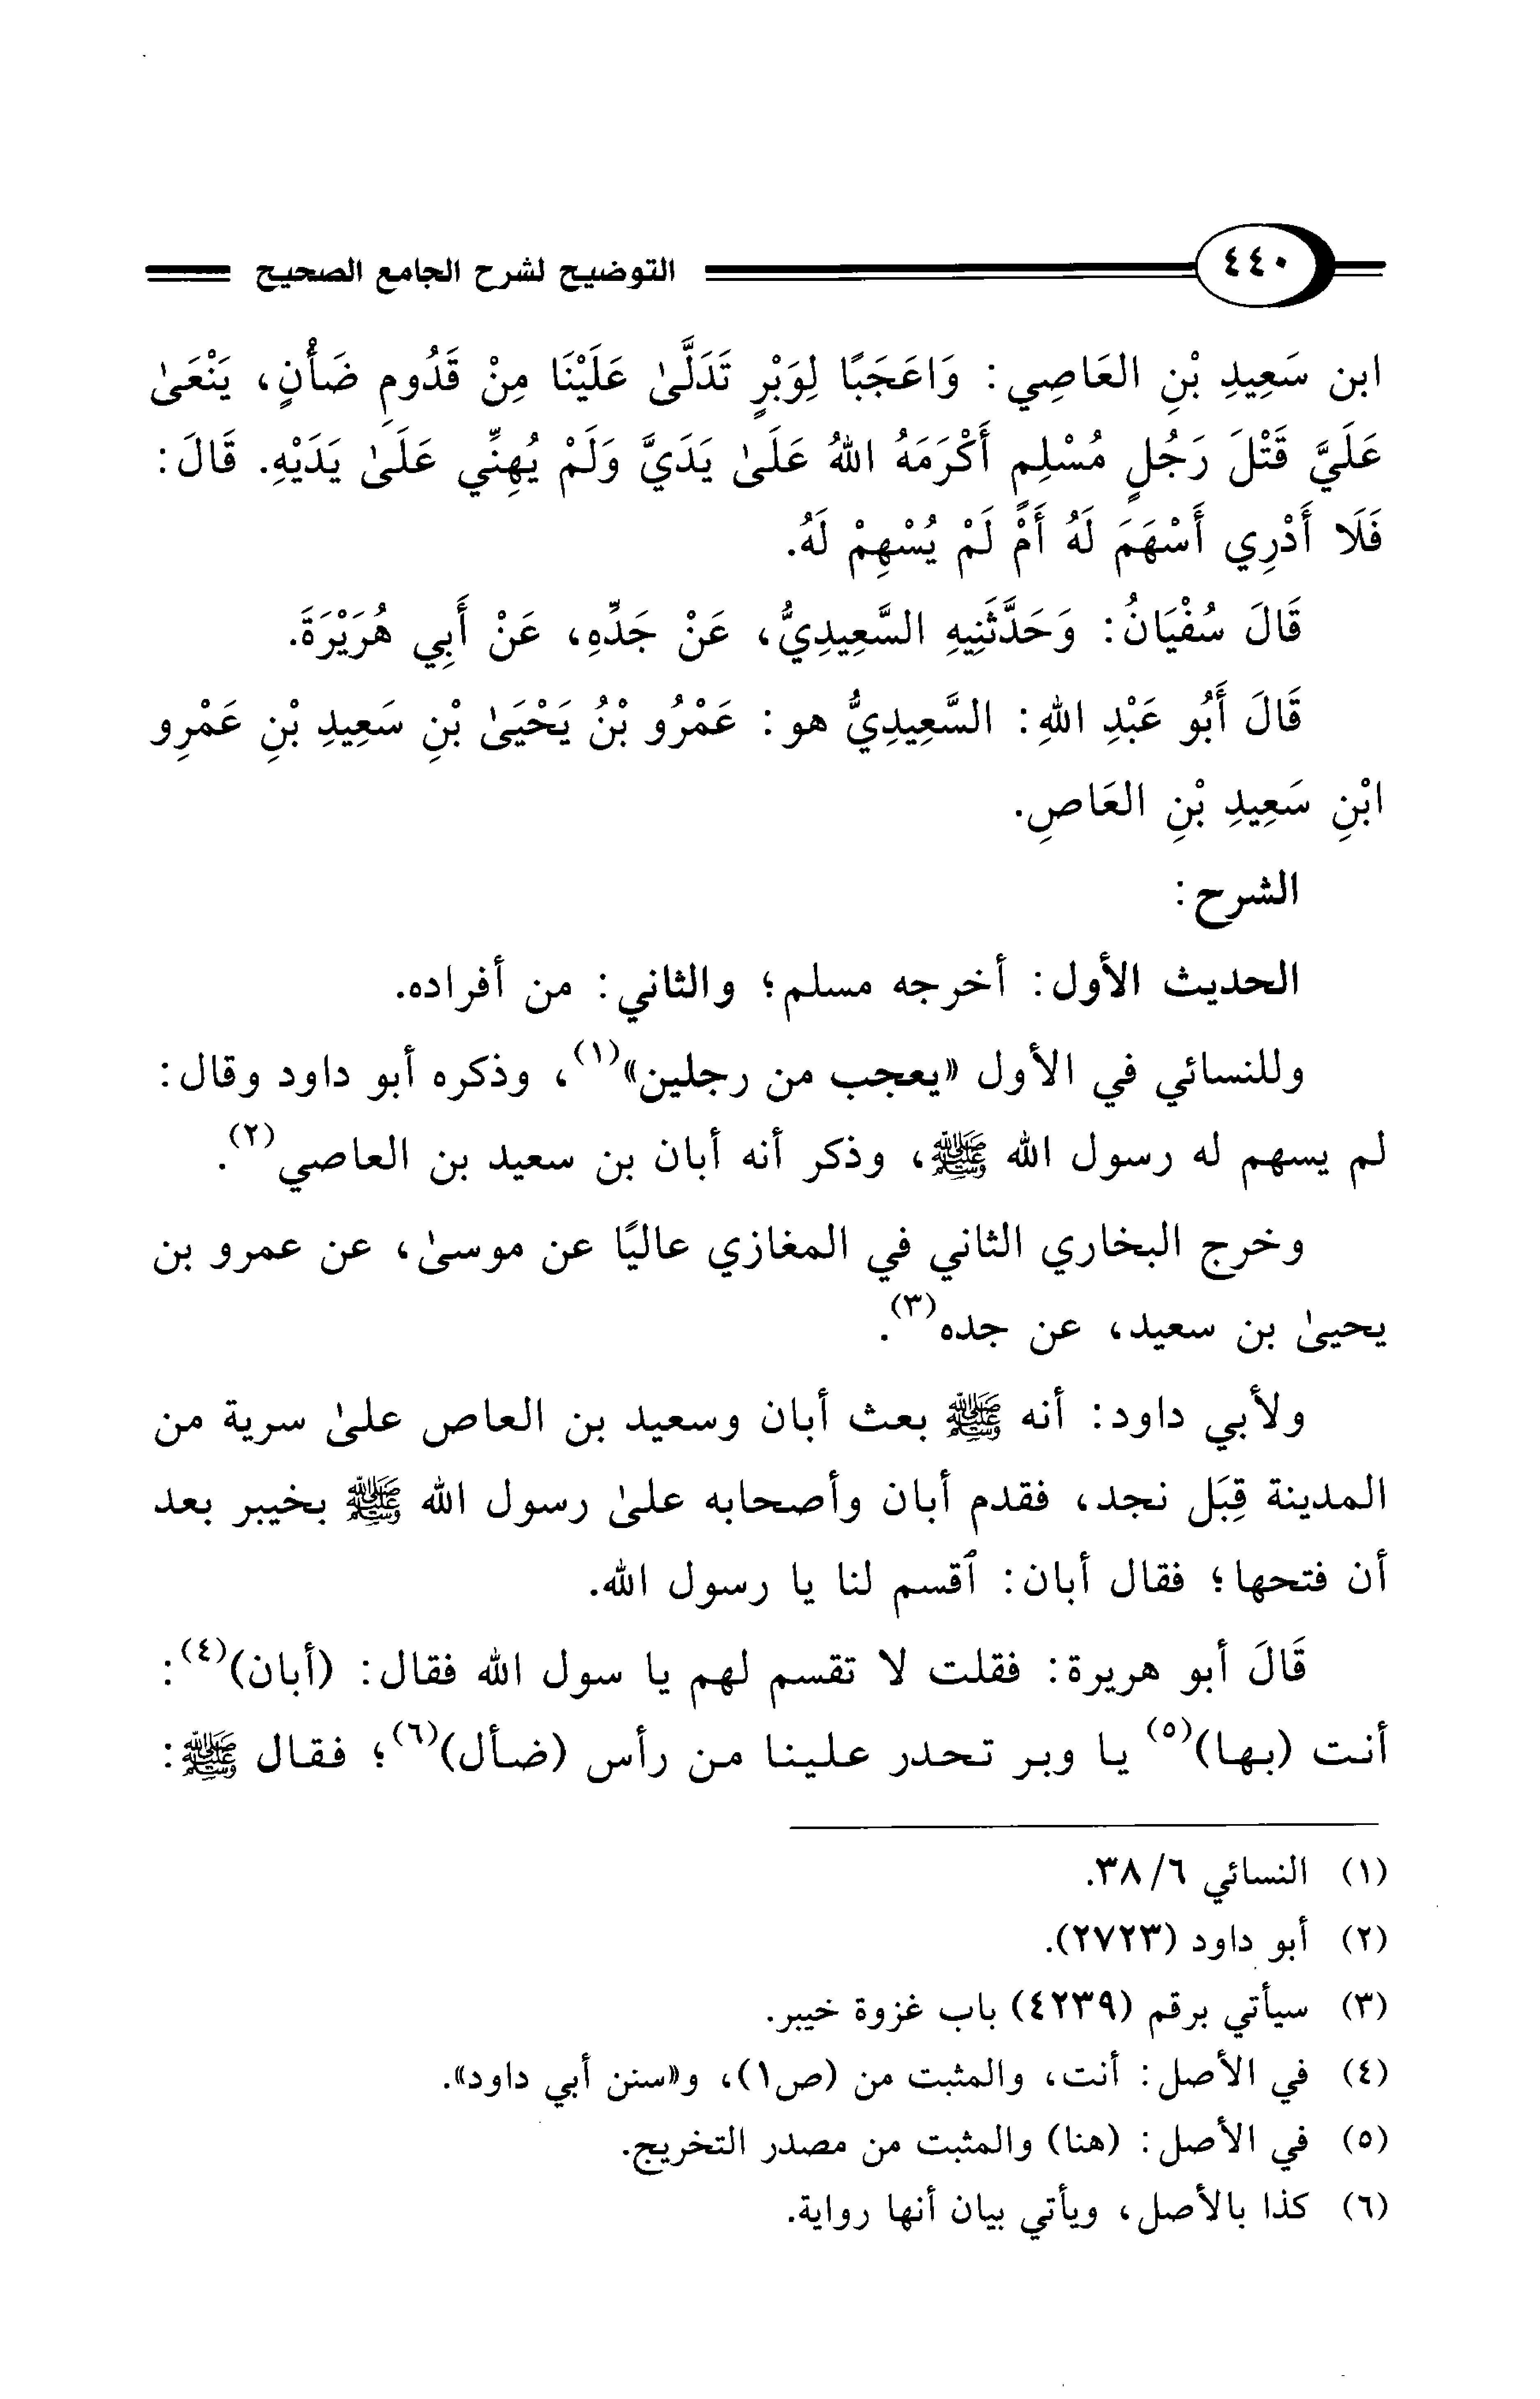 ٤٤٠
التوضيح لشرح الجامع الصحيح
ابن سَعِيدِ بْنِ العَاصِي: وَاعَجَبًا لِوَبْرٍ تَدَلَّىٰ عَلَيْنَا مِنْ قَدُومِ ضَأْنٍ، يَنْعَىٰ
عَلَيَّ قَتْلَ رَجُلٍ مُسْلِمٍ أَكْرَمَهُ اللهُ عَلَىٰ يَدَيَّ وَلَمْ يُهِنِّي عَلَىٰ يَدَيْهِ. قَالَ:
فَلَا أَدْرِي أَسْهَمَ لَهُ أَمْ لَمْ يُسْهِمْ لَهُ.
قَالَ سُفْيَانُ: وَحَدَّثَنِيهِ السَّعِيدِيُّ، عَنْ جَدِّهِ، عَنْ أَبِي هُرَيْرَةَ.
قَالَ أَبُو عَبْدِ اللهِ: السَّعِيدِيُّ هو: عَمْرُو بْنُ يَحْيَىٰ بْنِ سَعِيدِ بْنِ عَمْرِو
ابْنِ سَعِيدِ بْنِ العَاصِ.
الشرح:
الحديث الأول: أخرجه مسلم؛ والثاني: من أفراده.
وللنسائي في الأول «يعجب من رجلين»(١)، وذكره أبو داود وقال:
لم يسهم له رسول الله ﷺ، وذكر أنه أبان بن سعيد بن العاصي(٢).
وخرج البخاري الثاني في المغازي عاليًا عن موسىٰ، عن عمرو بن
يحيىٰ بن سعيد، عن جده(٣).
ولأبي داود: أنه ﷺ بعث أبان وسعيد بن العاص علىٰ سرية من
المدينة قِبَل نجد، فقدم أبان وأصحابه علىٰ رسول الله ﷺ بخيبر بعد
أن فتحها؛ فقال أبان: ٱقسم لنا يا رسول الله.
قَالَ أبو هريرة: فقلت لا تقسم لهم يا سول الله فقال: (أبان)(٤):
أنت (بها)(٥) يا وبر تحدر علينا من رأس (ضأل)(٦)؛ فقال ﷺ:
(١) النسائي ٦/ ٣٨.
(٢) أبو داود (٢٧٢٣).
(٣) سيأتي برقم (٤٢٣٩) باب غزوة خيبر.
(٤) في الأصل: أنت، والمثبت من (ص١)، و«سنن أبي داود».
(٥) في الأصل: (هنا) والمثبت من مصدر التخريج.
(٦) كذا بالأصل، ويأتي بيان أنها رواية.